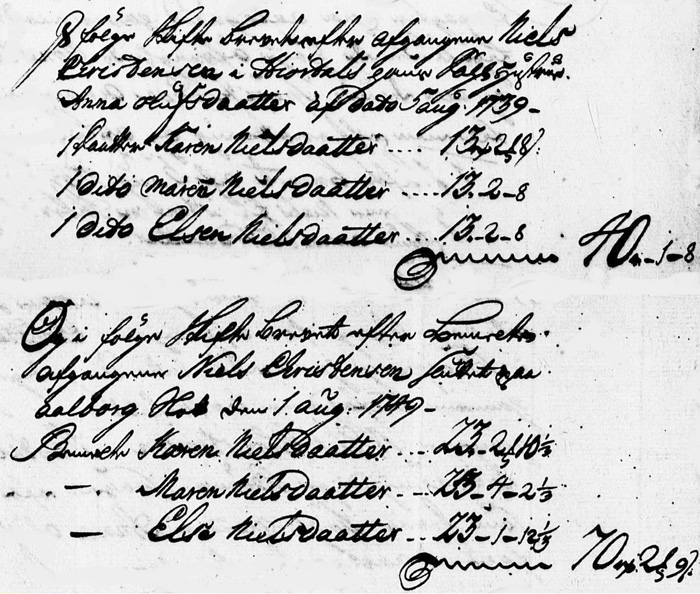 følge Skifte brevet efter afgangene Niels
Christensen i Hiordals
Anna daatter af dato 5 aug. 1739-
1 daatter Karen Nielsdaatter .... 13 2 8
1 dito Maren Nielsdaatter .... 13.-2-8
1 dito Elsen Nielsdaatter .... 13.-2-8 40 -1-8
Og i følge Skifte brevet efter
afgangene Niels Christensen
aalborg den 1 aug.- 1749-
Karen Nielsdaatter ... 23.-2 10⅓
— Maren Nielsdaatter ... 23-4-2⅓
— Else Nielsdaatter .. 23-1-12⅓ 70 2 9